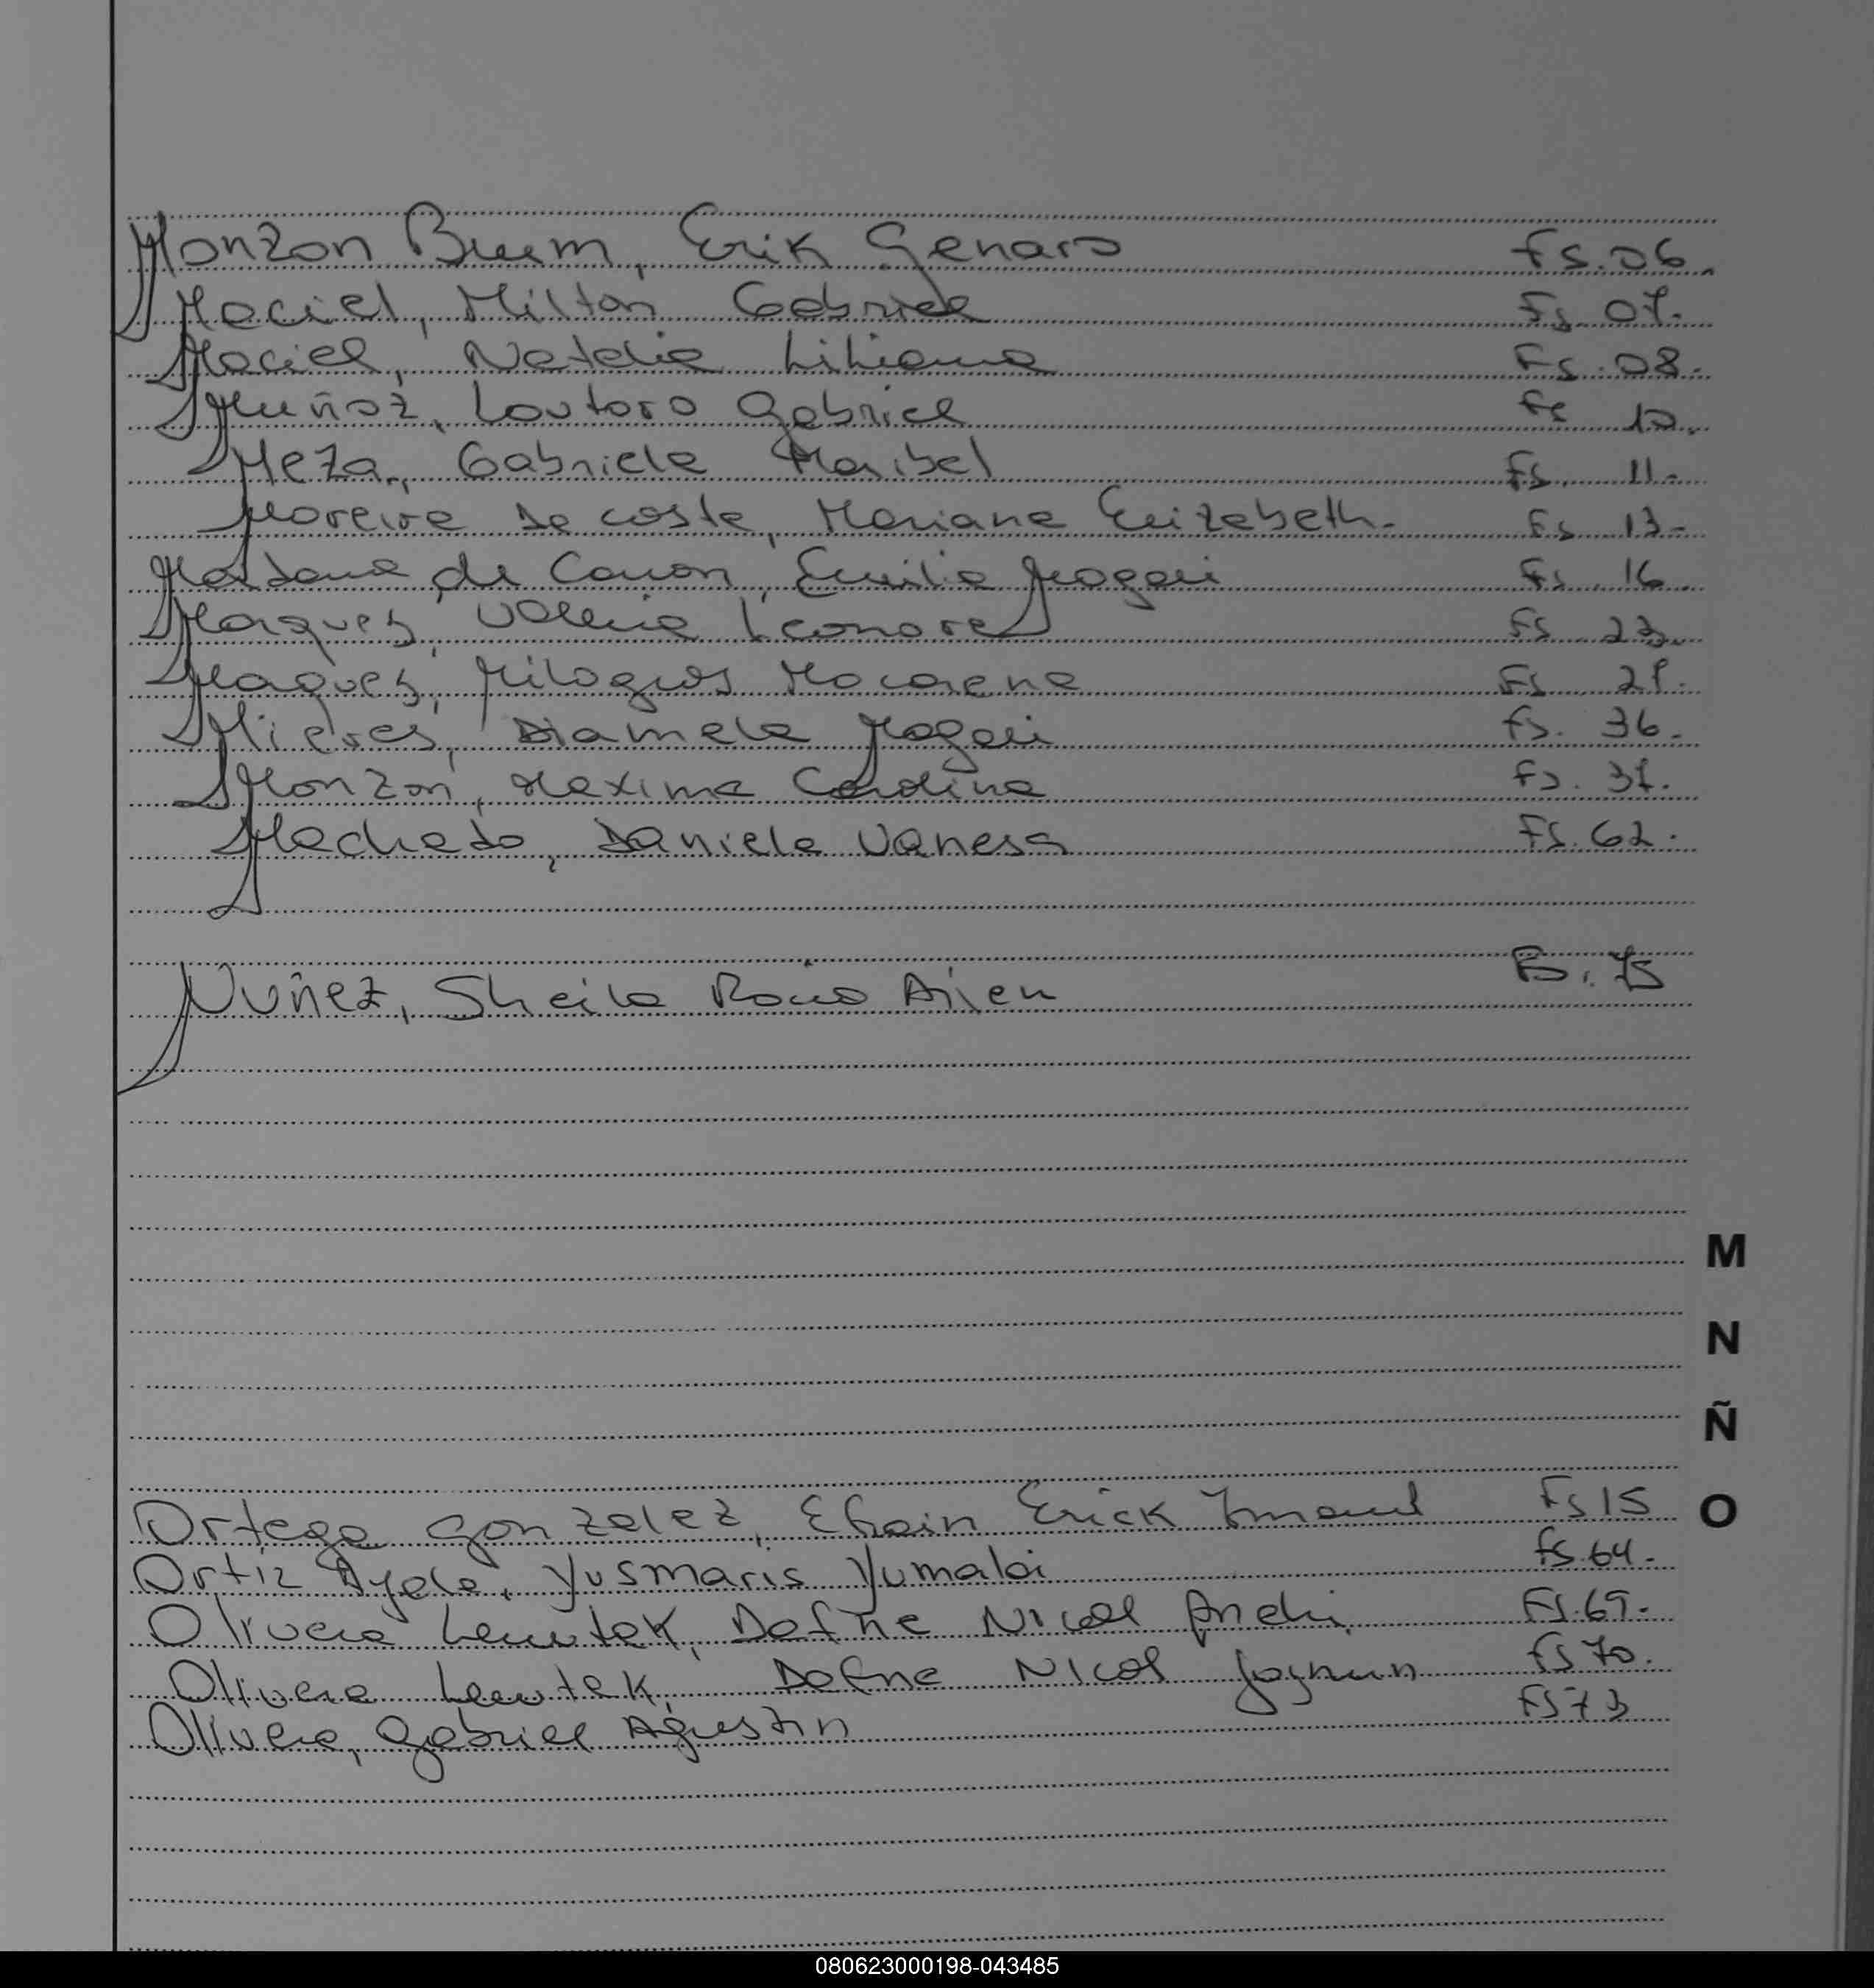 Monzon Brum, Erik Genaro Fs. 06.
Maciel, Milton Gabriel Fs 07.
Maciel, Natalia Liliana Fs. 08.
Muñoz, Lautaro Gabriel Fs 10.
Meza, Gabriela Maribel Fs. 11.-
Moreira Da costa, Mariana Elizabeth.- Fs 13.-
de Emilia Magali Fs. 16.
Maques, Valeria Leonore Fs. 23.
Maques, Milagros Macarena Fs 21.
Mieres, Diamela Magali Fs. 36.
Monzon, Maxima Carolina Fs. 37.
Machado, Daniela Vanesa Fs. 62.
Nuñez, Sheila Rocio Ailen Fs. 75
M
N
Ñ
O
Ortega Gonzalez, Efrain Erick Fs 15
Ortiz Ayala, Yusmaris Yumalai Fs. 64.-
Olivera Dafne Nicol Fs. 69.-
Olivera Dafne Nicol Fs 70.
Olivera, Gabriel Agustin Fs 73
080623000198-043485